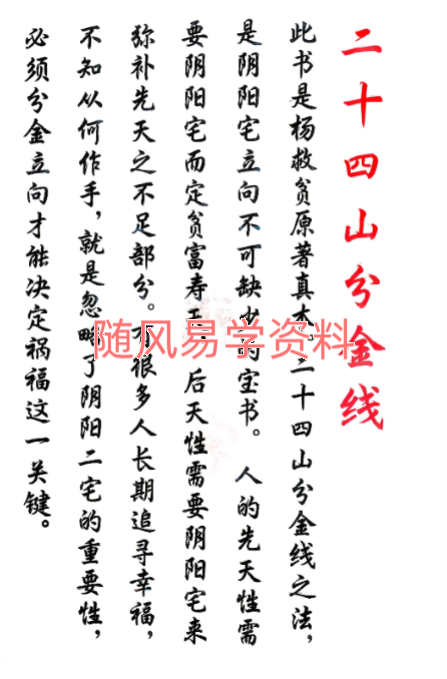 二十四山分金线
此书是杨救贫原著真本。二十四山分金线之法，
是阴阳宅立向不可缺少的宝书。 人的先天性需
要阴阳宅而定贫富寿工．后天性需要阴阳宅来
弥补先天之不足部分。有很多人长期追寻幸福，
不知从何作手，就是忽略了阴阳二宅的重要性，
必须分金立向才能决定祸福这一关键。
随风易学资料